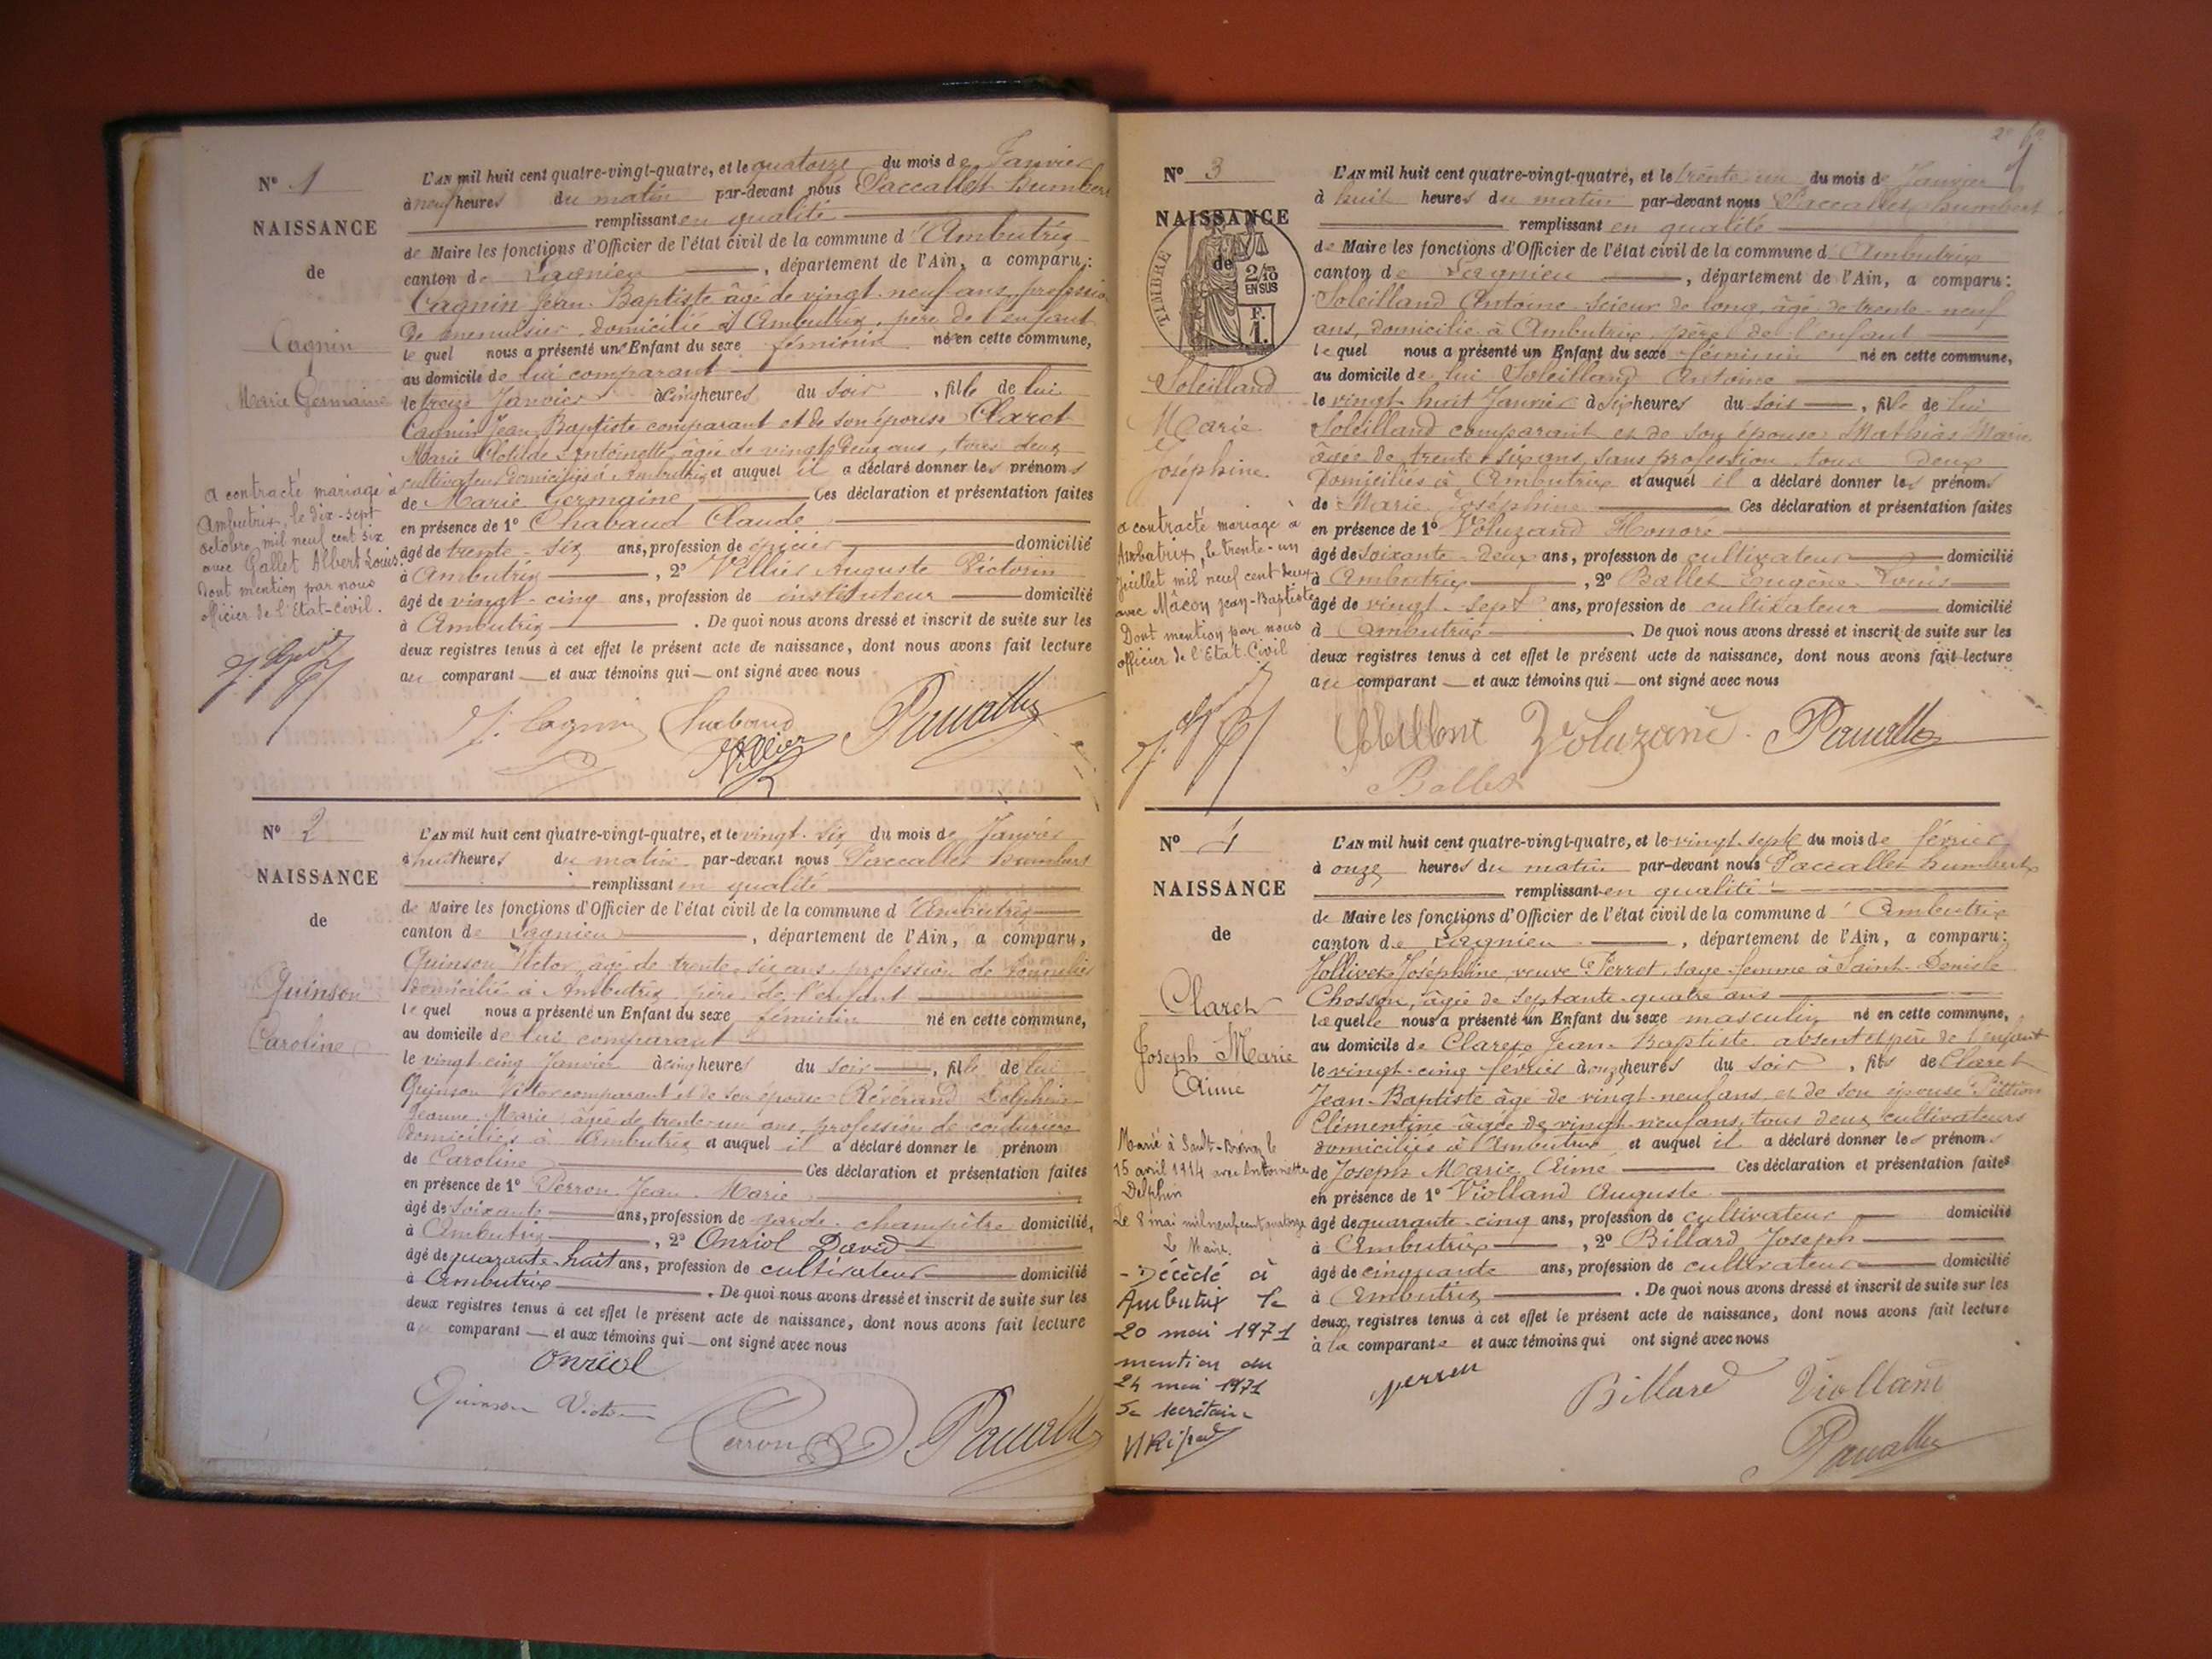 N° 1
NAISSANCE
de
Cagnin
Marie Germaine
a contracté mariage à
Ambutrix, le dix-sept
octobre mil neuf cent six
avec Gallet Albert Louis.
Dont mention par nous
officier de l'Etat-Civil.
L'AN mil huit cent quatre-vingt-quatre, et le quatorze du mois de Janvier
à neuf heures du matin par-devant nous Paccallet humbert
remplissant en qualité
de Maire les fonctions d'Officier de l'état civil de la commune d'Ambutrix
canton de Lagnieu, département de l'Ain, a comparu:
Cagnin Jean-Baptiste âgé de vingt-neuf ans, profession
de menuisier, domicilié à Ambutrix, père de l'enfant
lequel nous a présenté un Enfant du sexe féminin né en cette commune,
au domicile de lui comparant
le treize Janvier à cinq heures du soir, fille de lui
Cagnin Jean Baptiste comparant et de son épouse Claret
Marie Clotilde Antoinette, âgée de vingt deux ans, tous deux
cultivateurs domiciliés à Ambutrix et auquel il a déclaré donner les prénoms
de Marie Germaine Ces déclaration et présentation faites
en présence de 1° Chabaud Claude
âgé de trente-six ans, profession de épicier domicilié
à Ambutrix, 2° Villier Auguste Victorin
âgé de vingt-cinq ans, profession de instituteur domicilié
à Ambutrix. De quoi nous avons dressé et inscrit de suite sur les
deux registres tenus à cet effet le présent acte de naissance, dont nous avons fait lecture
au comparant et aux témoins qui ont signé avec nous
J. Cagnin Chabaud Paccallet
Villier
N° 2
NAISSANCE
de
Quinson
Caroline
L'AN mil huit cent quatre-vingt-quatre, et le vingt-six du mois de Janvier
à huit heures du matin par-devant nous Paccallet humbert
remplissant en qualité
de Maire les fonctions d'Officier de l'état civil de la commune d'Ambutrix
canton de Lagnieu, département de l'Ain, a comparu,
Quinson Victor âgé de trente-six ans, profession de
domicilié à Ambutrix, père de l'enfant
lequel nous a présenté un Enfant du sexe féminin né en cette commune,
au domicile de lui comparant
le vingt-cinq Janvier à cinq heures du soir, fille de lui
Quinson Victor comparant et de son épouse Révérand Delphine
Jeanne-Marie, âgée de trente-un ans, profession de couturière
domiciliés à Ambutrix et auquel il a déclaré donner le prénom
de Caroline Ces déclaration et présentation faites
en présence de 1° Perron Jean-Marie
âgé de soixante ans, profession de garde-champêtre domicilié,
à Ambutrix, 2° Onriol David
âgé de quarante-huit ans, profession de cultivateur domicilié
à Ambutrix. De quoi nous avons dressé et inscrit de suite sur les
deux registres tenus à cet effet le présent acte de naissance, dont nous avons fait lecture
au comparant et aux témoins qui ont signé avec nous
Onriol
Quinson Victor Perron Paccallet
N° 3
NAISSANCE
de
TIMBRE
2/10
EN SUS
F.
1.
Soleilland
Marie
Joséphine
a contracté mariage à
Ambutrix, le trente-un
Juillet mil neuf cent deux
avec Mâcon Jean-Baptiste
Dont mention par nous
officier de l'Etat-Civil
L'AN mil huit cent quatre-vingt-quatre, et le trente-un du mois de Janvier
à huit heures du matin par-devant nous Paccallet humbert
remplissant en qualité
de Maire les fonctions d'Officier de l'état civil de la commune d'Ambutrix
canton de Lagnieu, département de l'Ain, a comparu:
Soleilland Antoine scieur de long, âgé de trente-neuf
ans, domicilié à Ambutrix, père de l'enfant
lequel nous a présenté un Enfant du sexe féminin né en cette commune,
au domicile de lui Soleilland Antoine
le vingt huit Janvier à six heures du soir, fille de lui
Soleilland comparant et de son épouse Mathias Marie
âgée de trente six ans, sans profession, tous deux
domiciliés à Ambutrix et auquel il a déclaré donner les prénoms
de Marie Joséphine Ces déclaration et présentation faites
en présence de 1° Voluzand Honoré
âgé de soixante-deux ans, profession de cultivateur domicilié
à Ambutrix, 2° Ballet Eugène Louis
âgé de vingt-sept ans, profession de cultivateur domicilié
à Ambutrix. De quoi nous avons dressé et inscrit de suite sur les
deux registres tenus à cet effet le présent acte de naissance, dont nous avons fait lecture
au comparant et aux témoins qui ont signé avec nous
Voluzand Paccallet
Ballet
N° 4
NAISSANCE
de
Claret
Joseph Marie
Aimé
Marié à Sault-Brénaz le
15 avril 1914 avec Antoinette
Delphin
Le 8 mai mil neuf cent quatorze
Le Maire.
- Décédé à
Ambutrix le
20 mai 1971
mention du
24 mai 1971
Le secrétaire
L'AN mil huit cent quatre-vingt-quatre, et le vingt-sept du mois de février
à onze heures du matin par-devant nous Paccallet humbert
remplissant en qualité
de Maire les fonctions d'Officier de l'état civil de la commune d'Ambutrix
canton de Lagnieu, département de l'Ain, a comparu:
Jollivet Joséphine, veuve Perret, sage-femme à Saint-Denis-le
Chosson, âgée de septante-quatre ans
laquelle nous a présenté un Enfant du sexe masculin né en cette commune,
au domicile de Claret Jean-Baptiste absent et père de l'enfant
le vingt-cinq février à onze heures du soir, fils de Claret
Jean-Baptiste âgé de vingt-neuf ans et de son épouse Pittion
Clémentine âgée de vingt-neuf ans, tous deux cultivateurs
domiciliés à Ambutrix et auquel il a déclaré donner les prénoms
de Joseph Marie Aimé Ces déclaration et présentation faites
en présence de 1° Violland Auguste
âgé de quarante-cinq ans, profession de cultivateur domicilié
à Ambutrix, 2° Billard Joseph
âgé de cinquante ans, profession de cultivateur domicilié
à Ambutrix. De quoi nous avons dressé et inscrit de suite sur les
deux registres tenus à cet effet le présent acte de naissance, dont nous avons fait lecture
à la comparante et aux témoins qui ont signé avec nous
Billard Violland
Paccallet